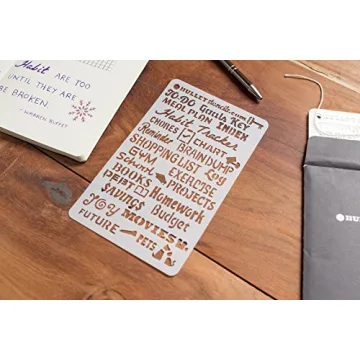 Habit ARE TOO
UNTIL THEY ARE
BE BROKEN.
- WARREN BUFFET
BULLETstencils.com
TO-DO GOALS KEY
MEAL PLAN INDEX
Habit Tracker
CHORES CHART
Reminder BRAIN DUMP
SHOPPING LIST Log
GYM EXERCISE
School PROJECTS
BOOKS Homework
DEBT
$AVING$ Budget
JOY MOVIES
FUTURE PETS
BU